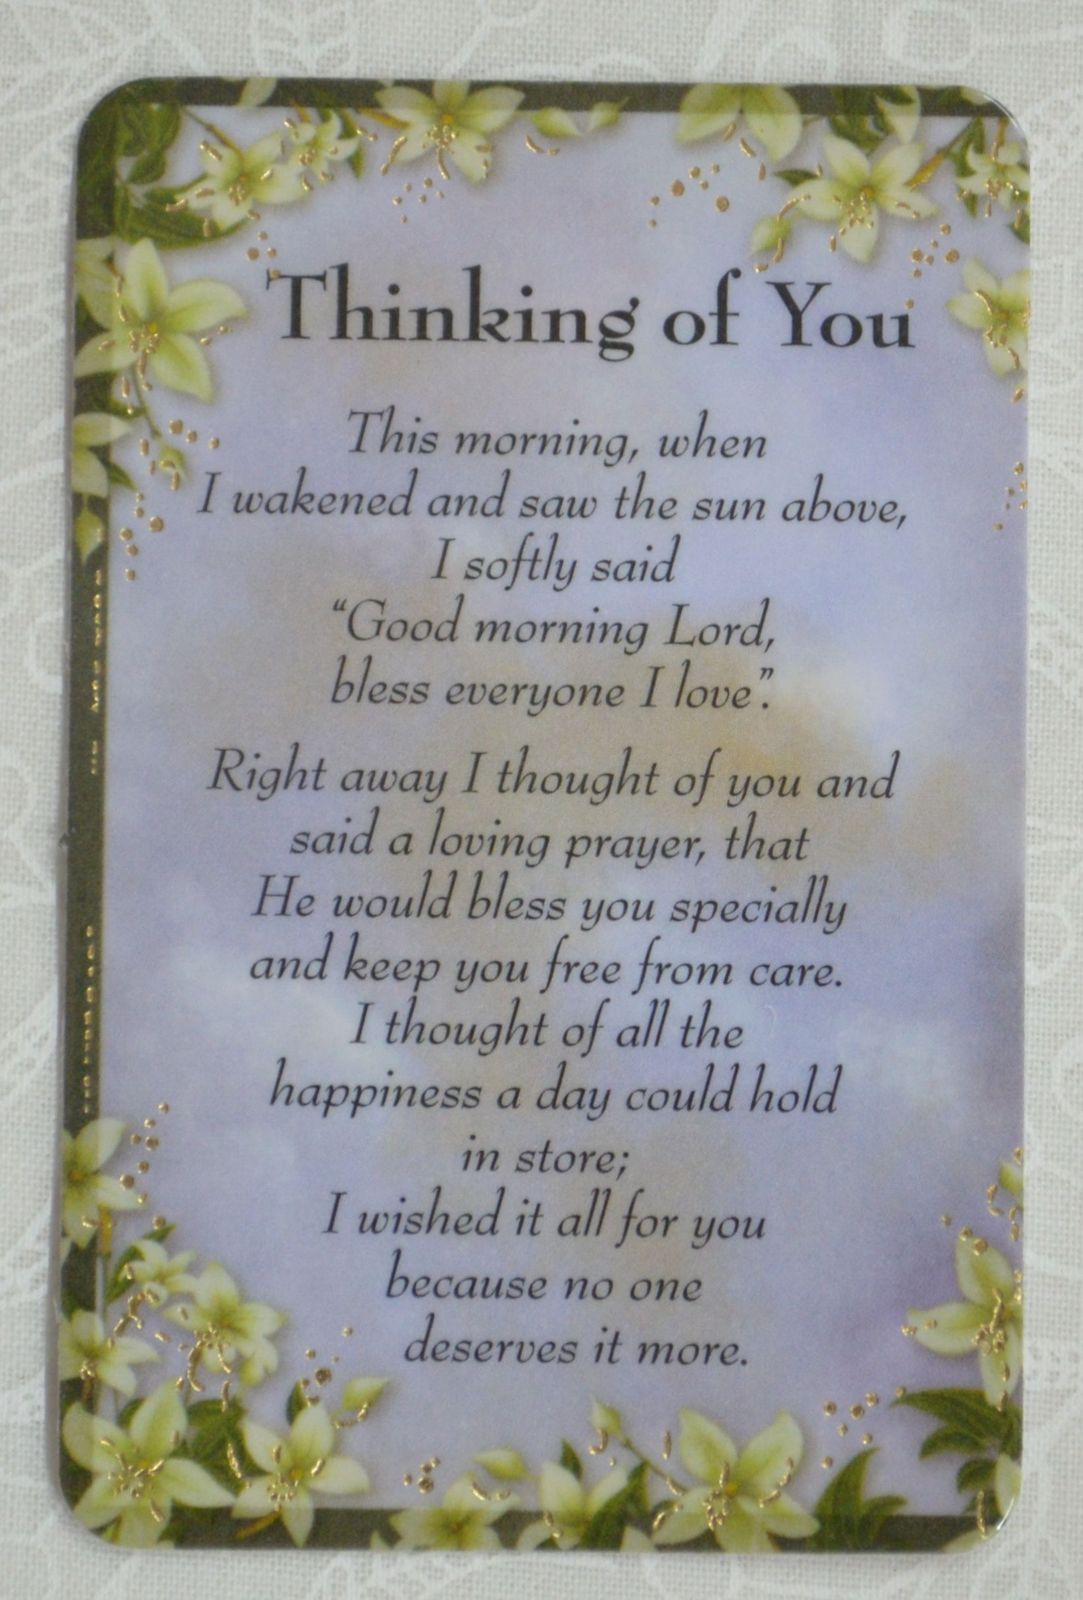 Thinking of You
This morning, when
I wakened and saw the sun above,
I softly said
“Good morning Lord,
bless everyone I love”.
Right away I thought of you and
said a loving prayer, that
He would bless you specially
and keep you free from care.
I thought of all the
happiness a day could hold
in store;
I wished it all for you
because no one
deserves it more.